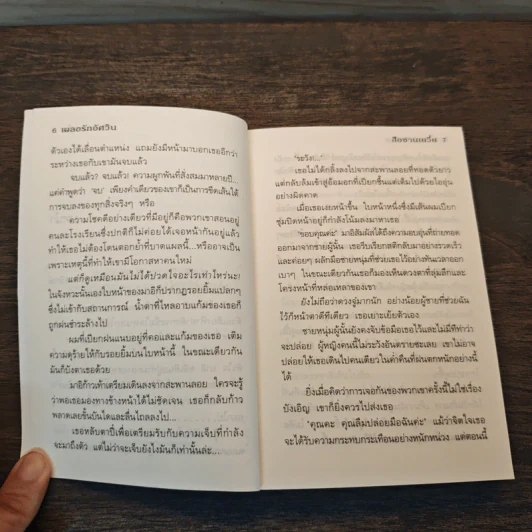 6 เผลอรักอัศวิน
ตัวเองได้เลื่อนตำแหน่ง แถมยังมีหน้ามาบอกเธออีกว่า
ระหว่างเธอกับเขามันจบแล้ว
จบแล้ว? จบแล้ว? ความผูกพันที่สั่งสมมาหลายปี...
แต่คำพูดว่า 'จบ' เพียงคำเดียวของเขาก็เป็นการขีดเส้นใต้
การจบลงของทุกสิ่งจริงๆ หรือ
ความโชคดีอย่างเดียวที่มีอยู่ก็คือพวกเขาสอนอยู่
คนละโรงเรียนซึ่งปกติก็ไม่ค่อยได้เจอหน้ากันอยู่แล้ว
ทำให้เธอไม่ต้องโดนตอกย้ำที่บาดแผลนี้...หรืออาจเป็น
เพราะเหตุนี้ที่ทำให้เขามีโอกาสหาคนใหม่
แต่ก็ดูเหมือนมันไม่ได้ปวดใจอะไรเท่าไหร่นะ!
ในจังหวะนั้นเองใบหน้าของมาอิก็ปรากฏรอยยิ้มแปลกๆ
ซึ่งไม่เข้ากับสถานการณ์ น้ำตาที่ไหลอาบแก้มของเธอก็
ถูกฝนชำระล้างไป
ผมที่เปียกฝนแนบอยู่ที่คอและแก้มของเธอ เติม
ความดุร้ายให้กับรอยยิ้มบนใบหน้านี้ ในขณะเดียวกัน
มันก็บังตาเธอด้วย
มาอิก้าวเท้าเตรียมเดินลงจากสะพานลอย ใครจะรู้
ว่าพอเธอมองทางข้างหน้าได้ไม่ชัดเจน เธอก็กลับก้าว
พลาดเลยขั้นบันไดและลื่นไถลลงไป...
เธอหลับตาปี๋เพื่อเตรียมรับกับความเจ็บที่กำลัง
จะมาถึงตัว แต่ไม่ว่าจะเจ็บยังไงมันก็เท่านั้นล่ะ...
สือซานเยวี่ย 7
"ระวัง..."
เธอไม่ได้กลิ้งลงไปจากสะพานลอยที่ทอดตัวยาว
แต่กลับล้มเข้าสู่อ้อมอกที่เปียกชื้นแต่เต็มไปด้วยไออุ่น
อย่างผิดคาด
เมื่อเธอเงยหน้าขึ้น ใบหน้าหนึ่งซึ่งมีเส้นผมเปียก
ชุ่มปิดหน้าอยู่ก็กำลังโน้มลงมาหาเธอ
"ขอบคุณค่ะ" มาอิสัมผัสได้ถึงความอบอุ่นที่ถ่ายทอด
ออกมาจากชายผู้นั้น เธอรีบเรียกสติกลับมาอย่างรวดเร็ว
และค่อยๆ ผลักมือชายหนุ่มที่ช่วยเธอไว้อย่างทันเวลาออก
เบาๆ ในขณะเดียวกันเธอก็มองเห็นดวงตาที่ลุ่มลึกและ
โครงหน้าที่หล่อเหลาของเขา
ยังไม่ถือว่าดวงจู๋มากนัก อย่างน้อยผู้ชายที่ช่วยฉัน
ไว้ก็หน้าตาดีทีเดียว เธอเยาะเย้ยตัวเอง
ชายหนุ่มผู้นั้นยังคงจับข้อมือเธอไว้และไม่มีทีท่าว่า
จะปล่อย ผู้หญิงคนนี้ไม่ระวังอันตรายซะเลย เขาไม่อาจ
ปล่อยให้เธอเดินไปคนเดียวในค่ำคืนที่ฝนตกหนักอย่างนี้
ได้
ยิ่งเมื่อคิดว่าการเจอกันของพวกเขาครั้งนี้ไม่ใช่เรื่อง
บังเอิญ เขาก็ยิ่งควรไปส่งเธอ
"คุณคะ คุณลืมปล่อยมือฉันค่ะ" แม้ว่าจิตใจเธอ
จะได้รับความกระทบกระเทือนอย่างหนักหน่วง แต่ตอนนี้